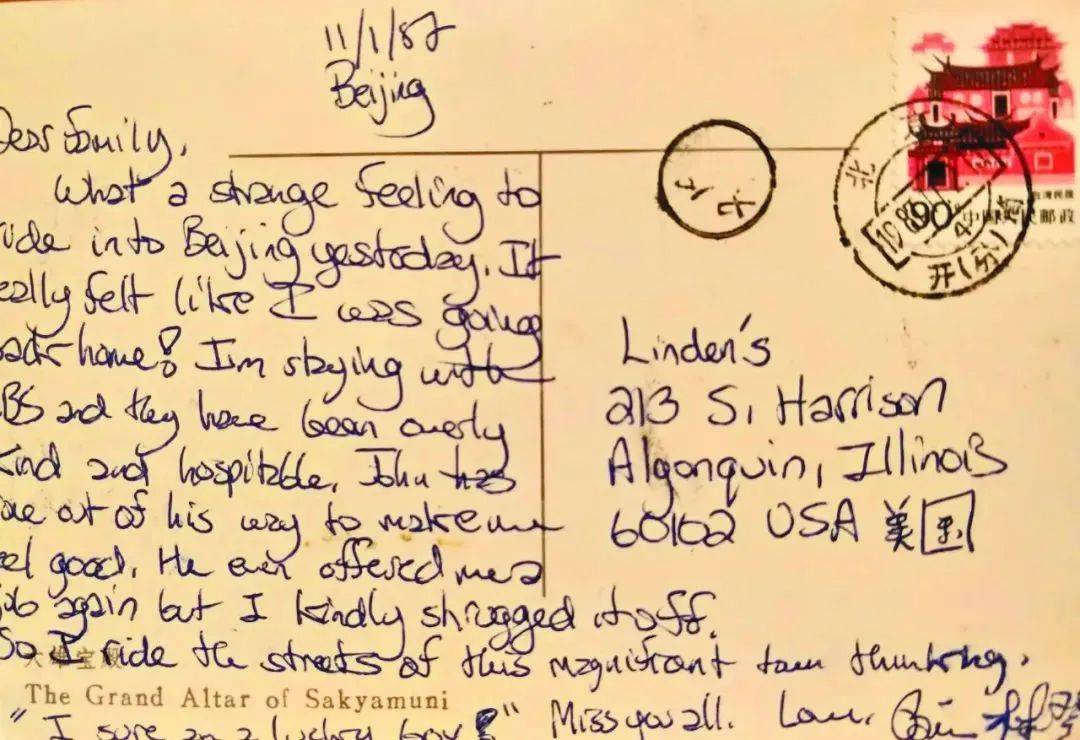 11/1/87
Beijing
Dear Family,
What a strange feeling to
ride into Beijing yestoday. It
eally felt like I was going
back home! I'm staying with
CBS and they have been overly
kind and hospitable. John has
gone out of his way to make me
feel good. He even offered me a
job again but I kindly shrugged it off.
So I ride the streets of this magnificant town thinking,
"I sure am a lucky boy!" Miss you all. Love,
大雄宝殿
The Grand Altar of Sakyamuni
Linden's
213 S. Harrison
Algonquin, Illinois
60102 USA 美国
90
台湾民居
中国人民邮政
北京
1987